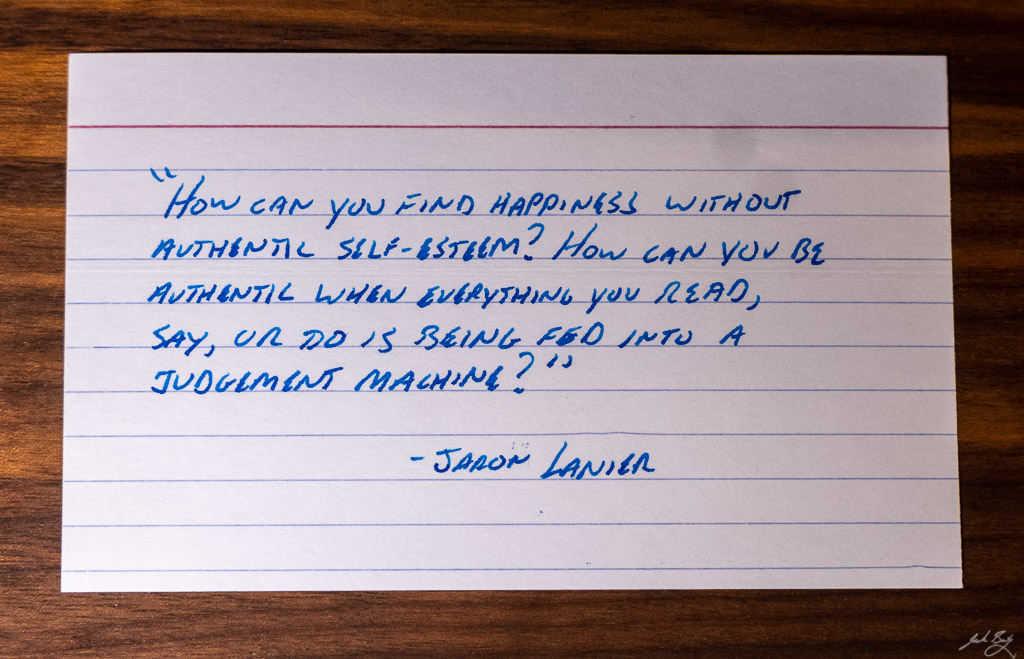 "How can you find happiness without
authentic self-esteem? How can you be
authentic when everything you read,
say, or do is being fed into a
judgement machine?"
- Jaron Lanier